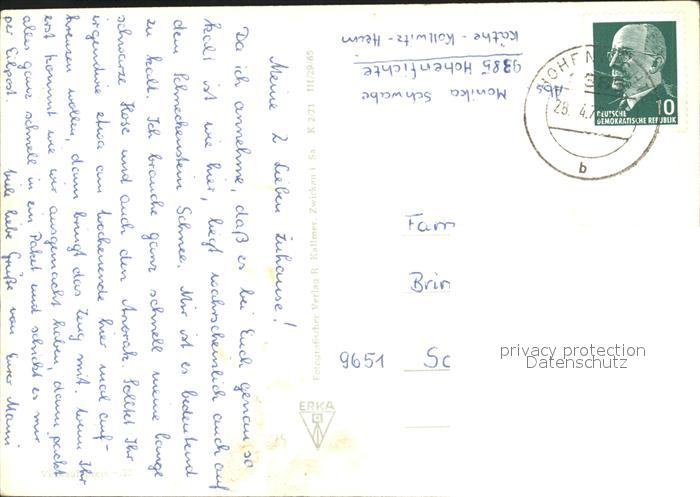 Meine 2 Lieben zuhause!
Da ich annehme, daß es bei Euch genau so
kalt ist wie hier, liegt wahrscheinlich auch auf
dem Schneckenstein Schnee. Mir ist es bedeutend
zu kalt. Ich brauche ganz schnell meine lange
schwarze Hose und auch den Anorak. Solltet Ihr
irgendwie etwa am Wochenende hier mal auf-
kreuzen wollen, dann bringt das Zeug mit. Wenn Ihr
erst kommt wie wir ausgemacht haben, dann packt
alles ganz schnell in ein Paket und schickt es mir
per Eilpost. Viele liebe Grüße von Eurer Mami
Fotografischer Verlag R. Kallmer, Zwickau i. Sa. K 2/71 III/29/65
ERKA
Abs
Monika Schwabe
9385 Hohenfichte
Käthe-Kollwitz-Heim
HOHENFICHTE
28. 4.
b
10
DEUTSCHE
DEMOKRATISCHE REPUBLIK
Fam
Brin
9651 Sc
privacy protection
Datenschutz